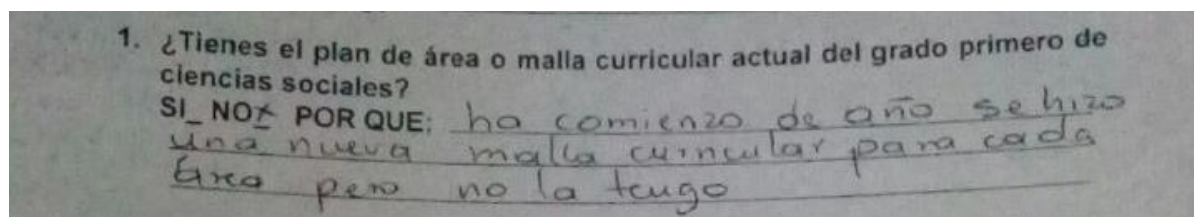 1. ¿Tienes el plan de área o malla curricular actual del grado primero de
ciencias sociales?
SI_ NOX PORQUE: ha comienzo de año se hizo
una nueva malla curricular para cada
área pero no la tengo